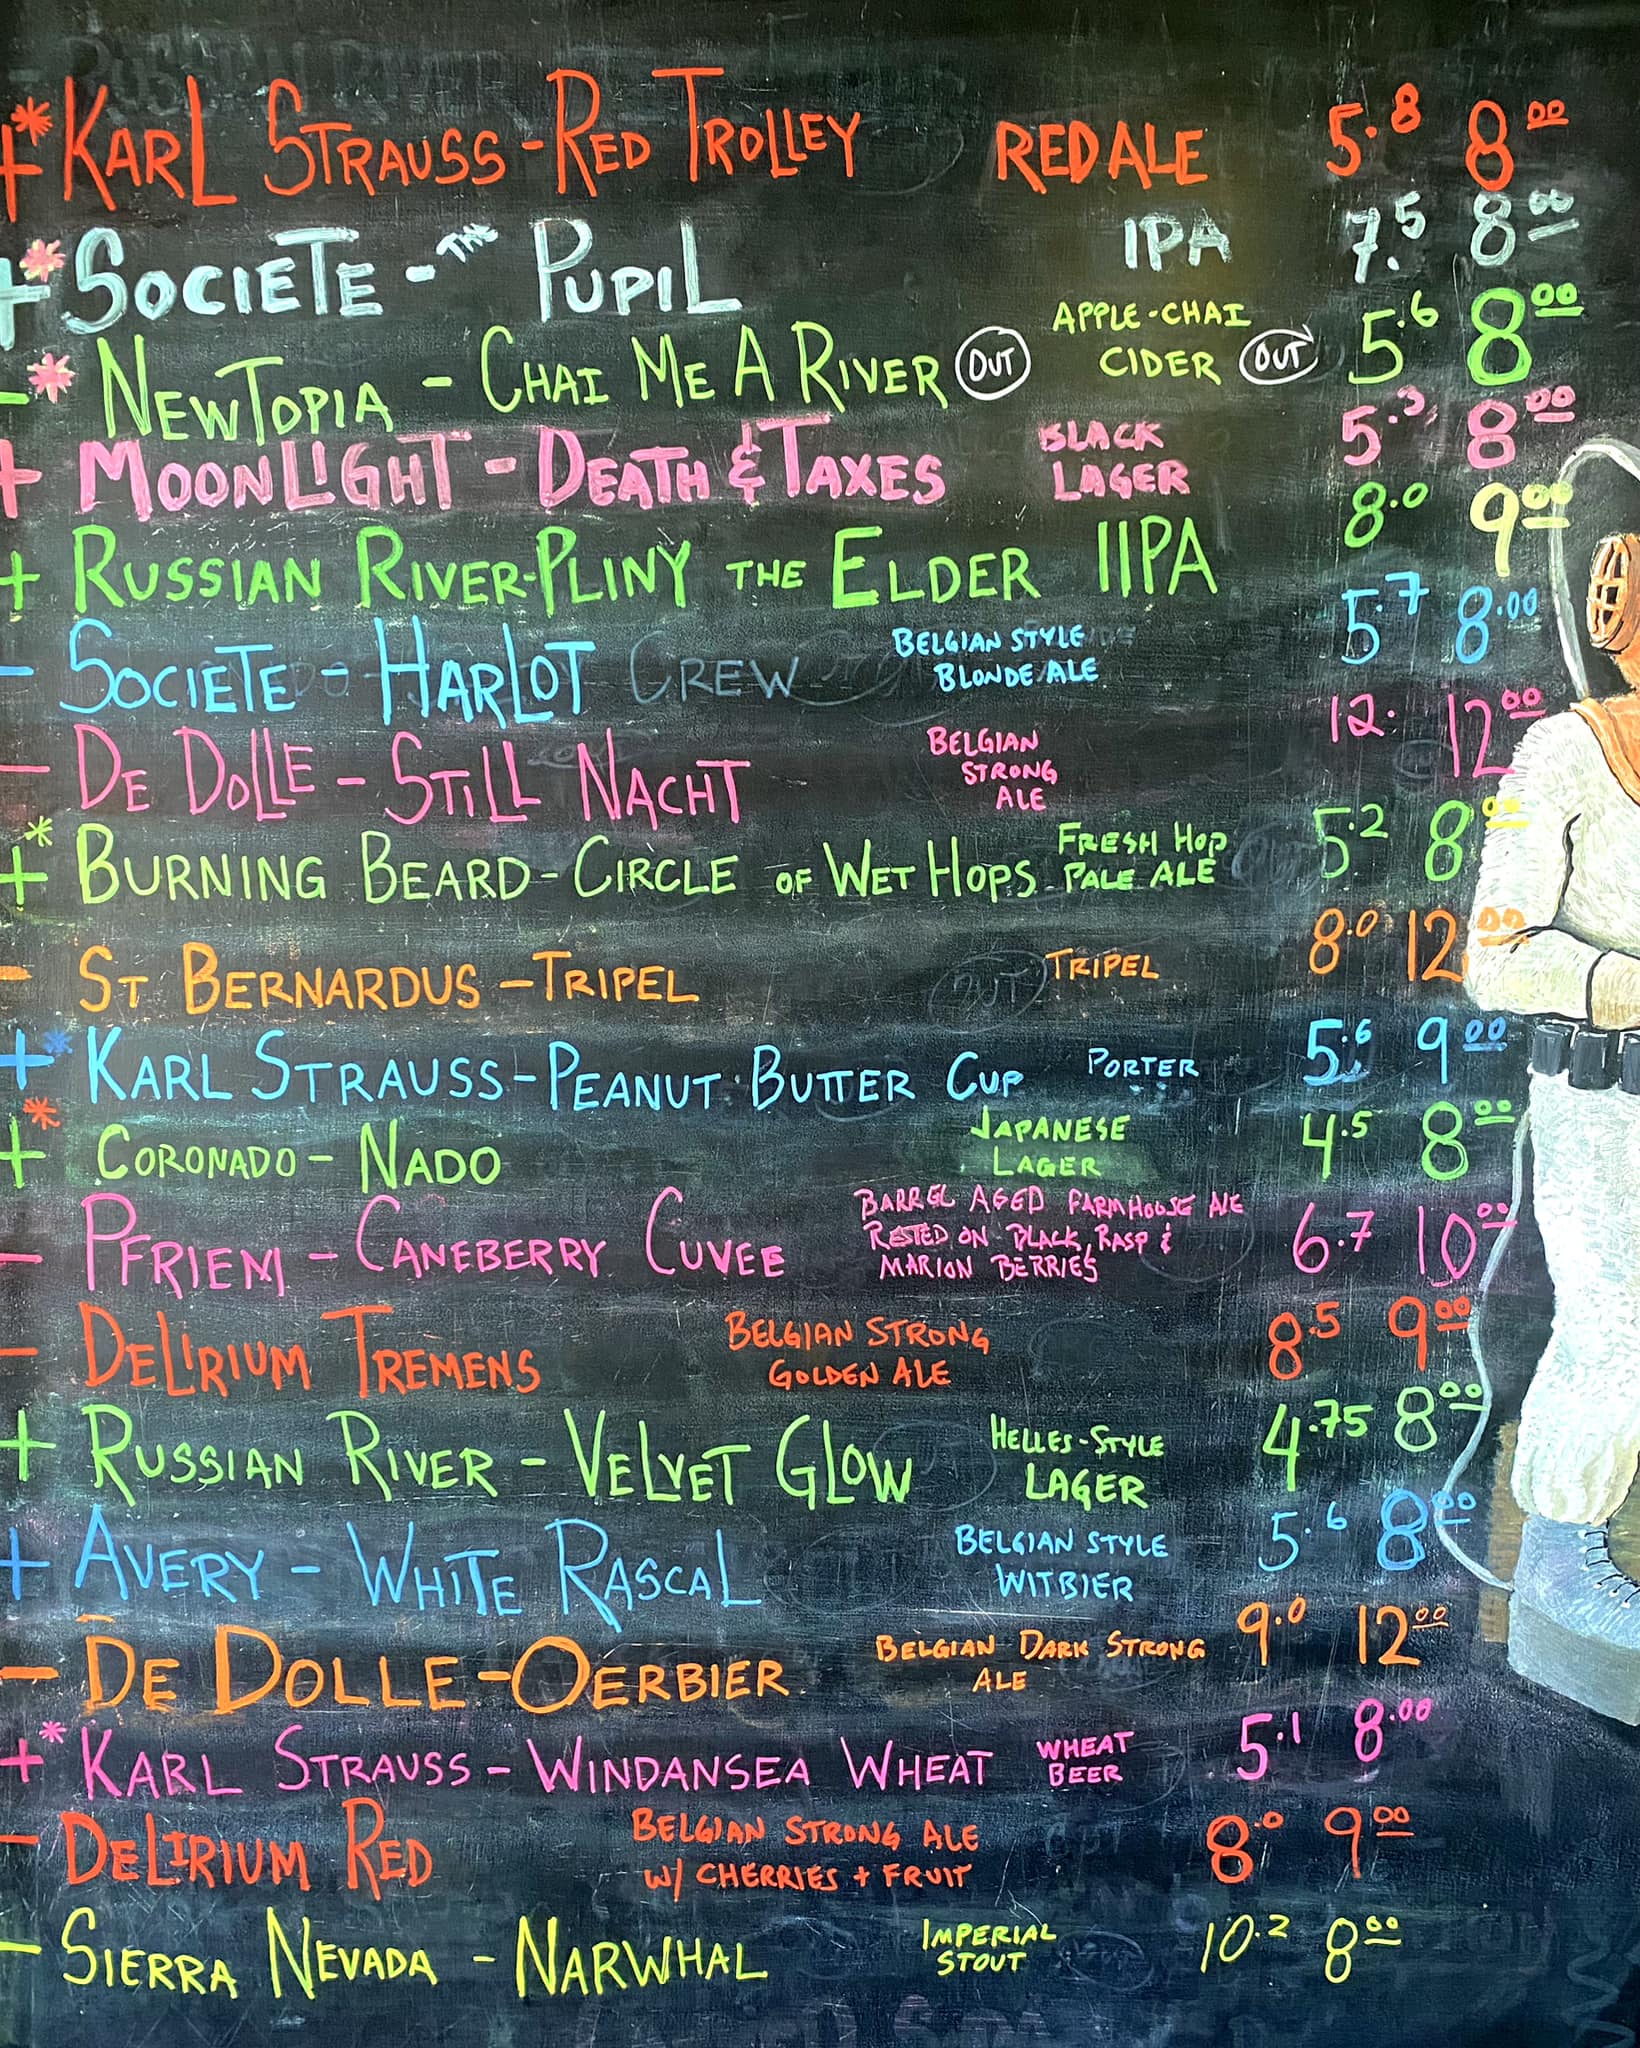 +* KARL STRAUSS - RED TROLLEY RED ALE 5.8 8.00
+* SOCIETE - THE PUPIL IPA 7.5 8.00
-* NEWTOPIA - CHAI ME A RIVER OUT APPLE-CHAI CIDER OUT 5.6 8.00
+ MOONLIGHT - DEATH & TAXES BLACK LAGER 5.3 8.00
+ RUSSIAN RIVER-PLINY THE ELDER IIPA 8.0 9.00
- SOCIETE - HARLOT CREW BELGIAN STYLE BLONDE ALE 5.7 8.00
- DE DOLLE - STILL NACHT BELGIAN STRONG ALE 12. 12.00
+* BURNING BEARD - CIRCLE OF WET HOPS FRESH HOP PALE ALE 5.2 8.00
- ST BERNARDUS - TRIPEL OUT TRIPEL 8.0 12.00
+* KARL STRAUSS - PEANUT BUTTER CUP PORTER 5.6 9.00
+* CORONADO - NADO JAPANESE LAGER 4.5 8.00
- PFRIEM - CANEBERRY CUVEE BARREL AGED FARMHOUSE ALE RESTED ON BLACK, RASP & MARION BERRIES 6.7 10.00
- DELIRIUM TREMENS BELGIAN STRONG GOLDEN ALE 8.5 9.00
+ RUSSIAN RIVER - VELVET GLOW HELLES-STYLE LAGER 4.75 8.00
+ AVERY - WHITE RASCAL BELGIAN STYLE WITBIER 5.6 8.00
- DE DOLLE - OERBIER BELGIAN DARK STRONG ALE 9.0 12.00
+* KARL STRAUSS - WINDANSEA WHEAT WHEAT BEER 5.1 8.00
- DELIRIUM RED BELGIAN STRONG ALE W/ CHERRIES + FRUIT 8.0 9.00
- SIERRA NEVADA - NARWHAL IMPERIAL STOUT 10.2 8.00